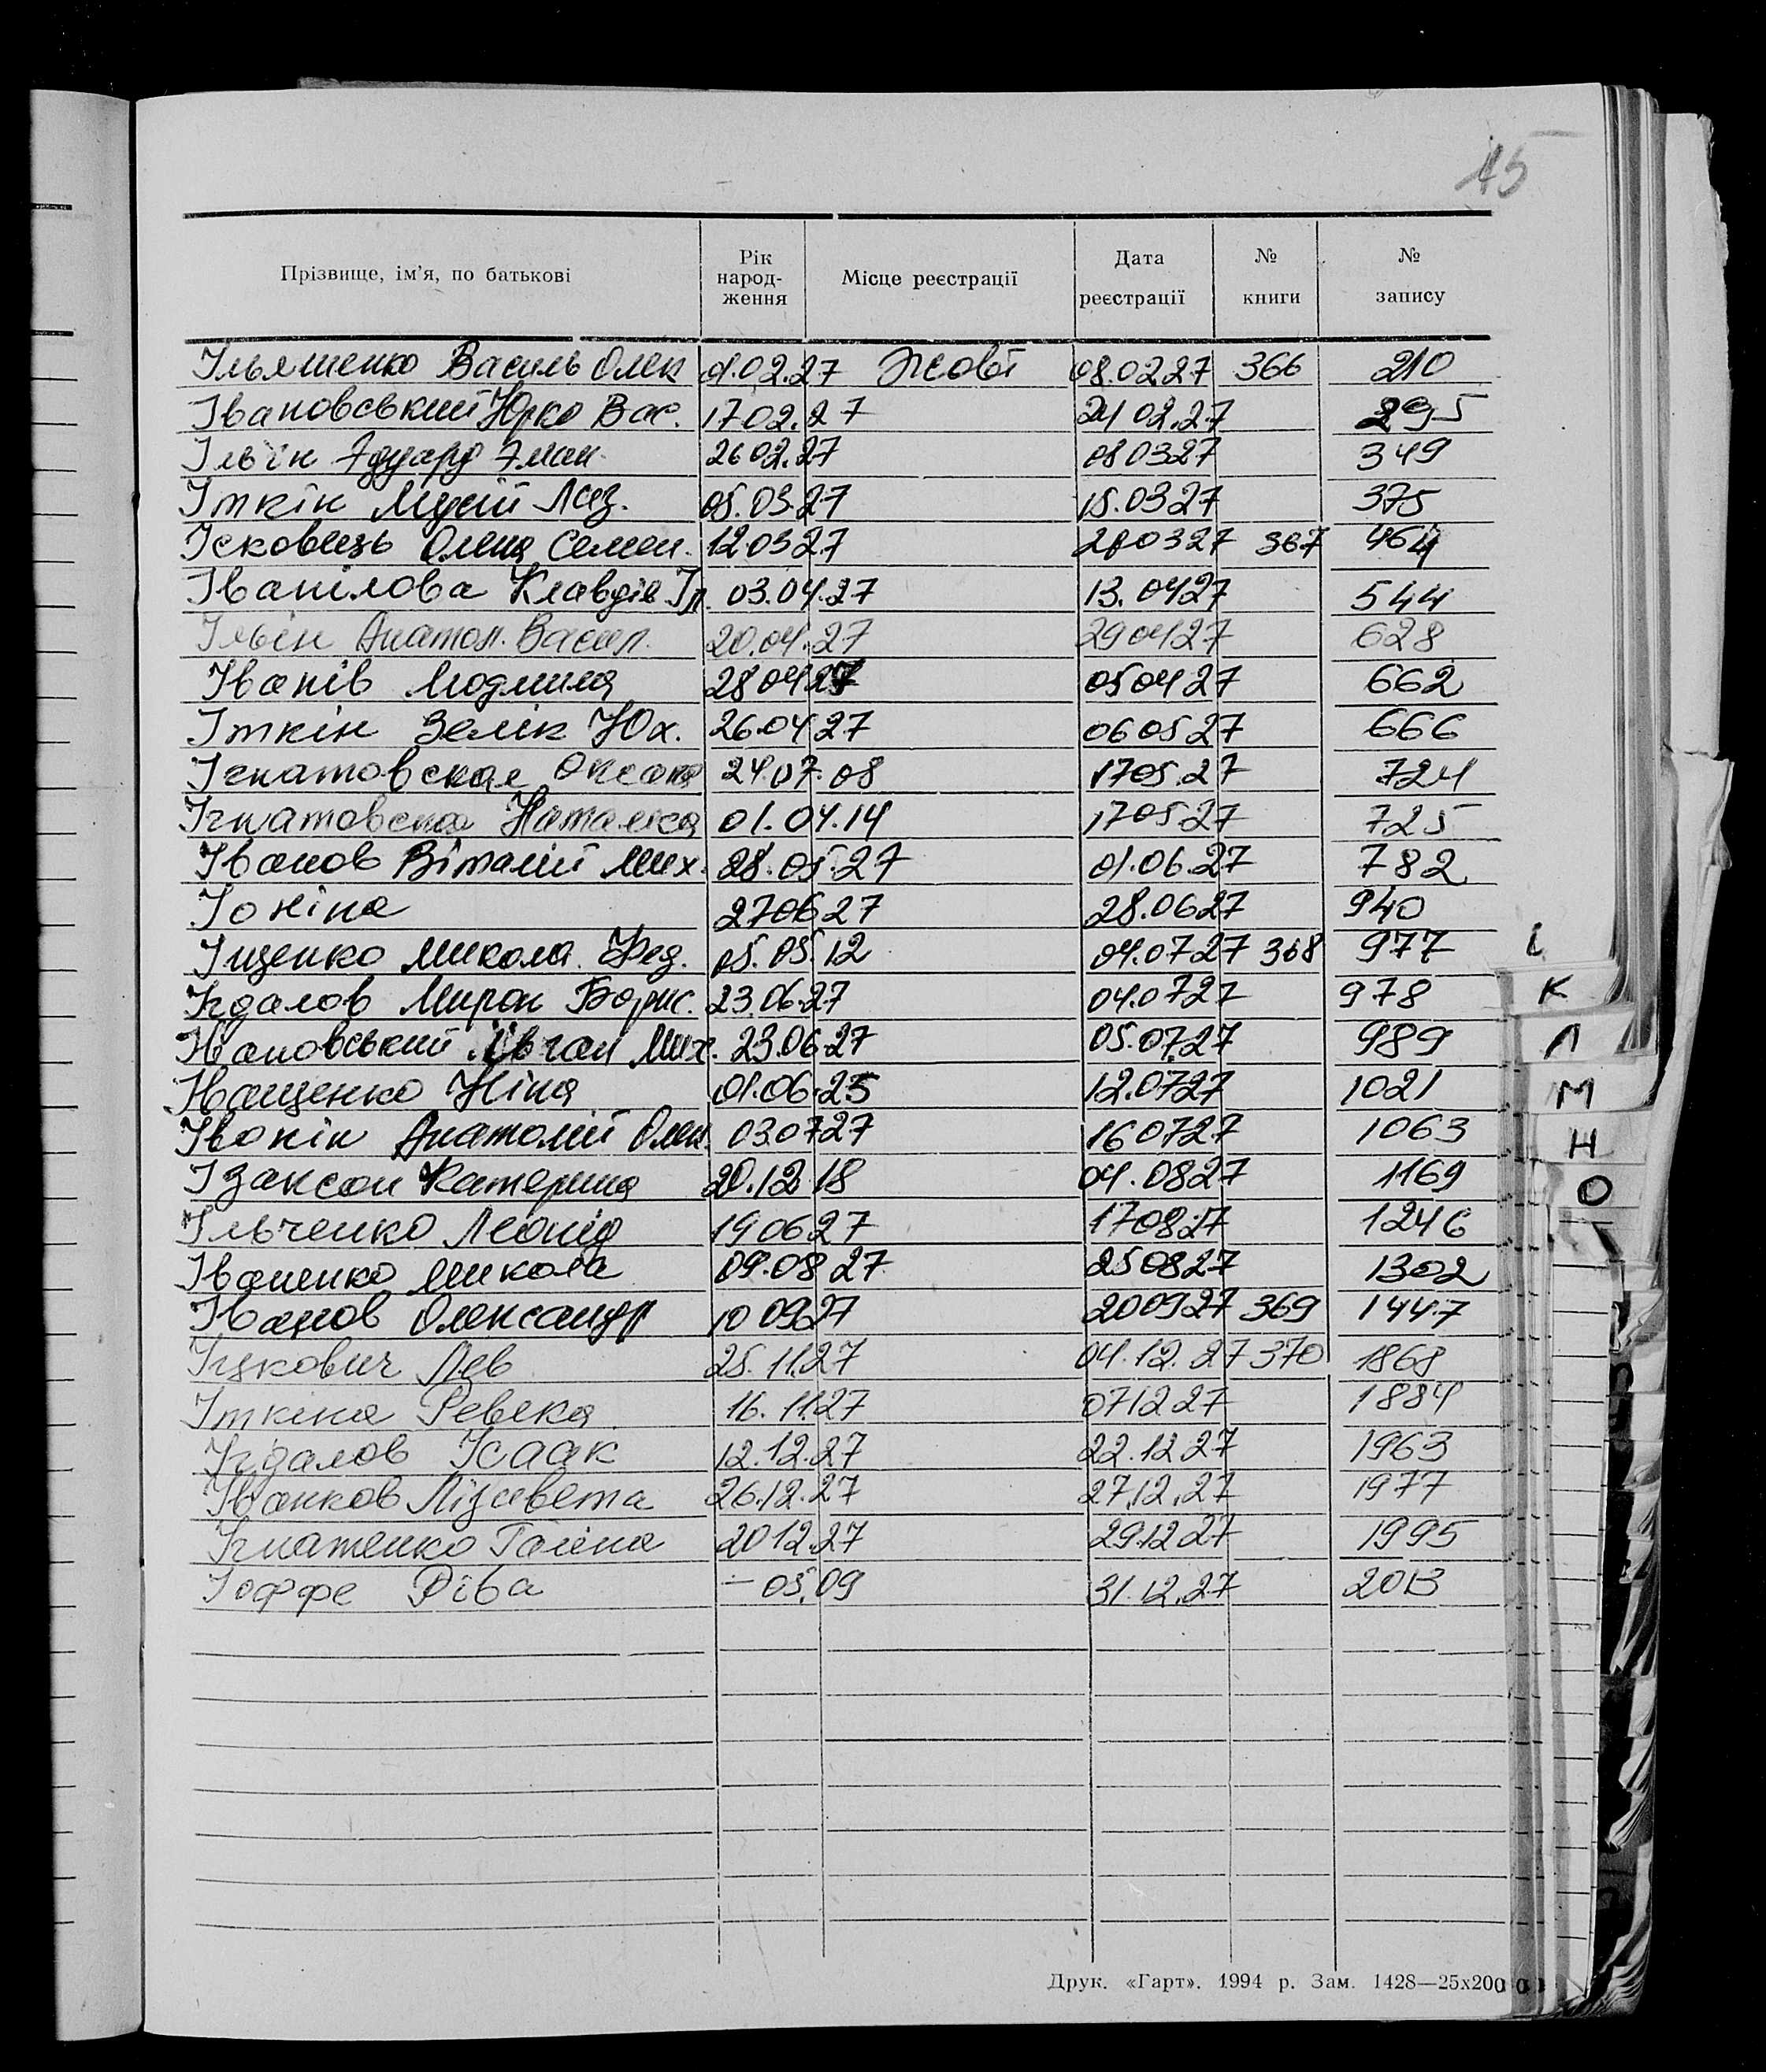 15
Прізвище, ім'я, по батькові Рік народ- ження Місце реєстрації Дата реєстрації № книги № запису
Ільяшенко Василь Олек 01.02.27 Жовт 08.02.27 366 210
Івановський Юрко Вас. 17 02.27 24 02.27 295
Ільїн Едуард Эман. 26 02.27 08 03 27 349
Іткін Мусій Лаз. 05.03.27 15.03 27 375
Ісковець Олена Семен. 12 03 27 28 03 27 367 464
Іванілова Клавдія Іл. 03.04.27 13.04 27 544
Ільїн Анатол. Васил. 20.04.27 29 04 27 628
Іванів Людмила 28 04 27 05 04 27 662
Іткін Зелік Юх. 26.04 27 06 05 27 666
Ігнатовская Оксана 24.07.08 17 05.27 724
Ігнатовская Наталка 01.04.14 17 05 27 725
Іванов Віталій Мих. 28.05.27 01.06.27 782
Іоніна 27 06 27 28.06 27 940
Іщенко Микола Фед. 05.05.12 04.07 27 368 977
Ігдалов Мирон Борис. 23.06.27 04.07 27 978
Івановський Мих. 23.06.27 05.07.27 989
Іващенко Ніна 01.06.25 12.07 27 1021
Івонін Анатолій Олек. 03.07 27 16 07 27 1063
Ізаксон Катерина 20.12 18 04.08 27 1169
Ільченко Леонід 19 06 27 17 08 27 1246
Іваненко Микола 09.08 27 25 08 27 1302
Іванов Олександр 10 09 27 20 09 27 369 1447
Іцкович Лев 25.11.27 04.12.27 370 1868
Іткіна Ревека 16.11.27 07 12 27 1884
Ігдалов Ісаак 12.12.27 22.12 27 1963
Іванков Лізавета 26.12.27 27.12.27 1977
Ігнатенко Галина 20 12.27 29.12 27 1995
Іоффе Ріва — 05.09 31.12.27 2013
К
Л
М
Н
О
Друк. «Гарт». 1994 р. Зам. 1428—25х200